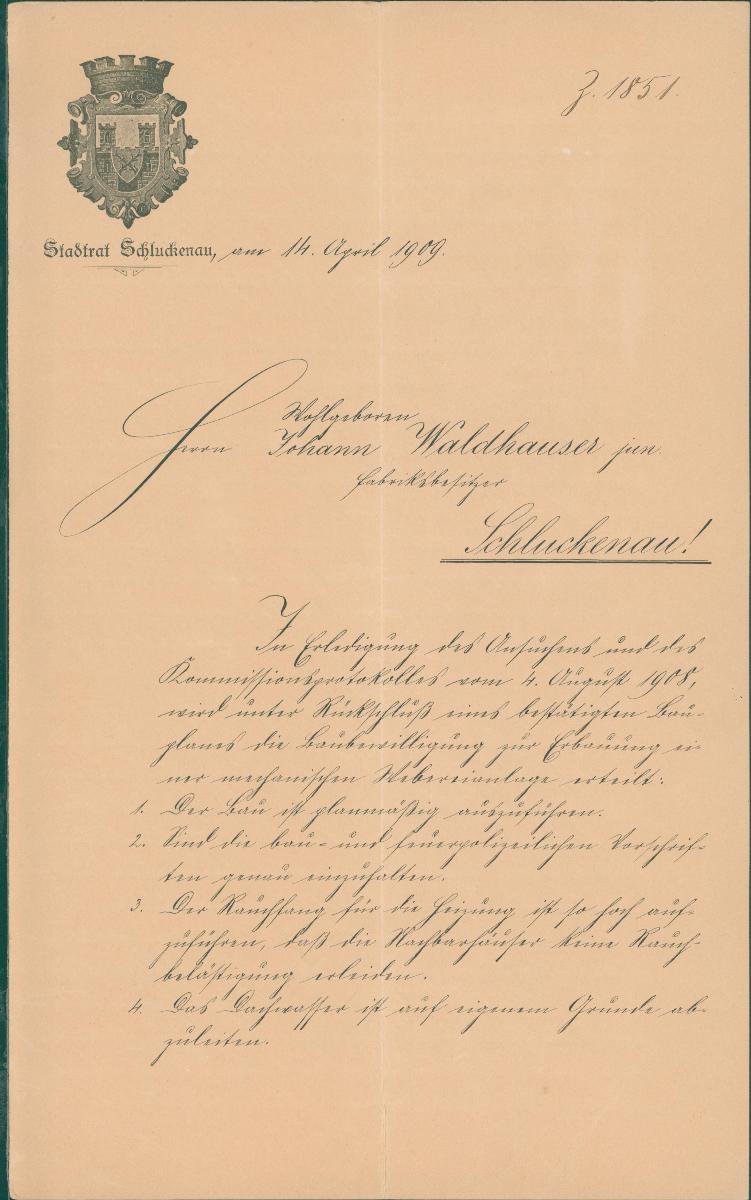 Z. 1851.
Stadtrat Schluckenau, am 14. April 1909.
Wohlgeboren
Herrn Johann Waldhauser jun.
Fabriksbesitzer
Schluckenau!
In Erledigung des Ansuchens und des
Kommissionsprotokolles vom 4. August 1908,
wird unter Rückschluß eines bestätigten Bau-
planes die Baubewilligung zur Erbauung ei-
ner mechanischen Webereianlage erteilt:
1. Der Bau ist planmäßig auszuführen.
2. Sind die bau- und feuerpolizeilichen Vorschrif-
ten genau einzuhalten.
3. Der Rauchfang für die Heizung ist so hoch auf-
zuführen, daß die Nachbarhäuser keine Rauch-
belästigung erleiden.
4. Das Dachwasser ist auf eigenem Grunde ab-
zuleiten.